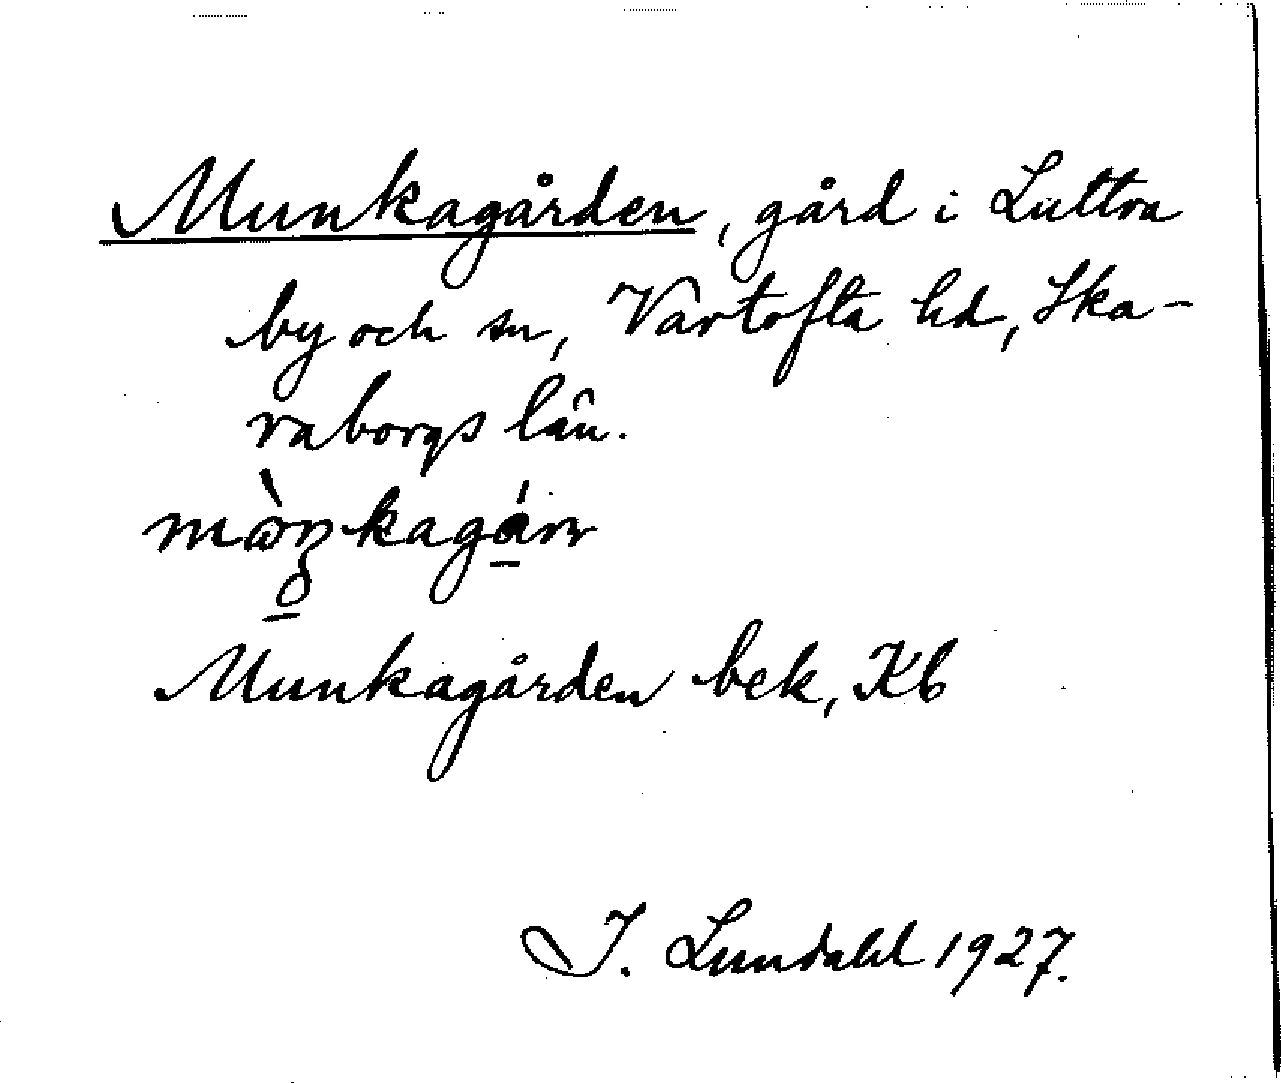 Munkagården, gård i Luttra
by och sn, Vartofta hd, Ska-
raborgs län.
Munkagården bek, Kb
I. Lundahl 1927.